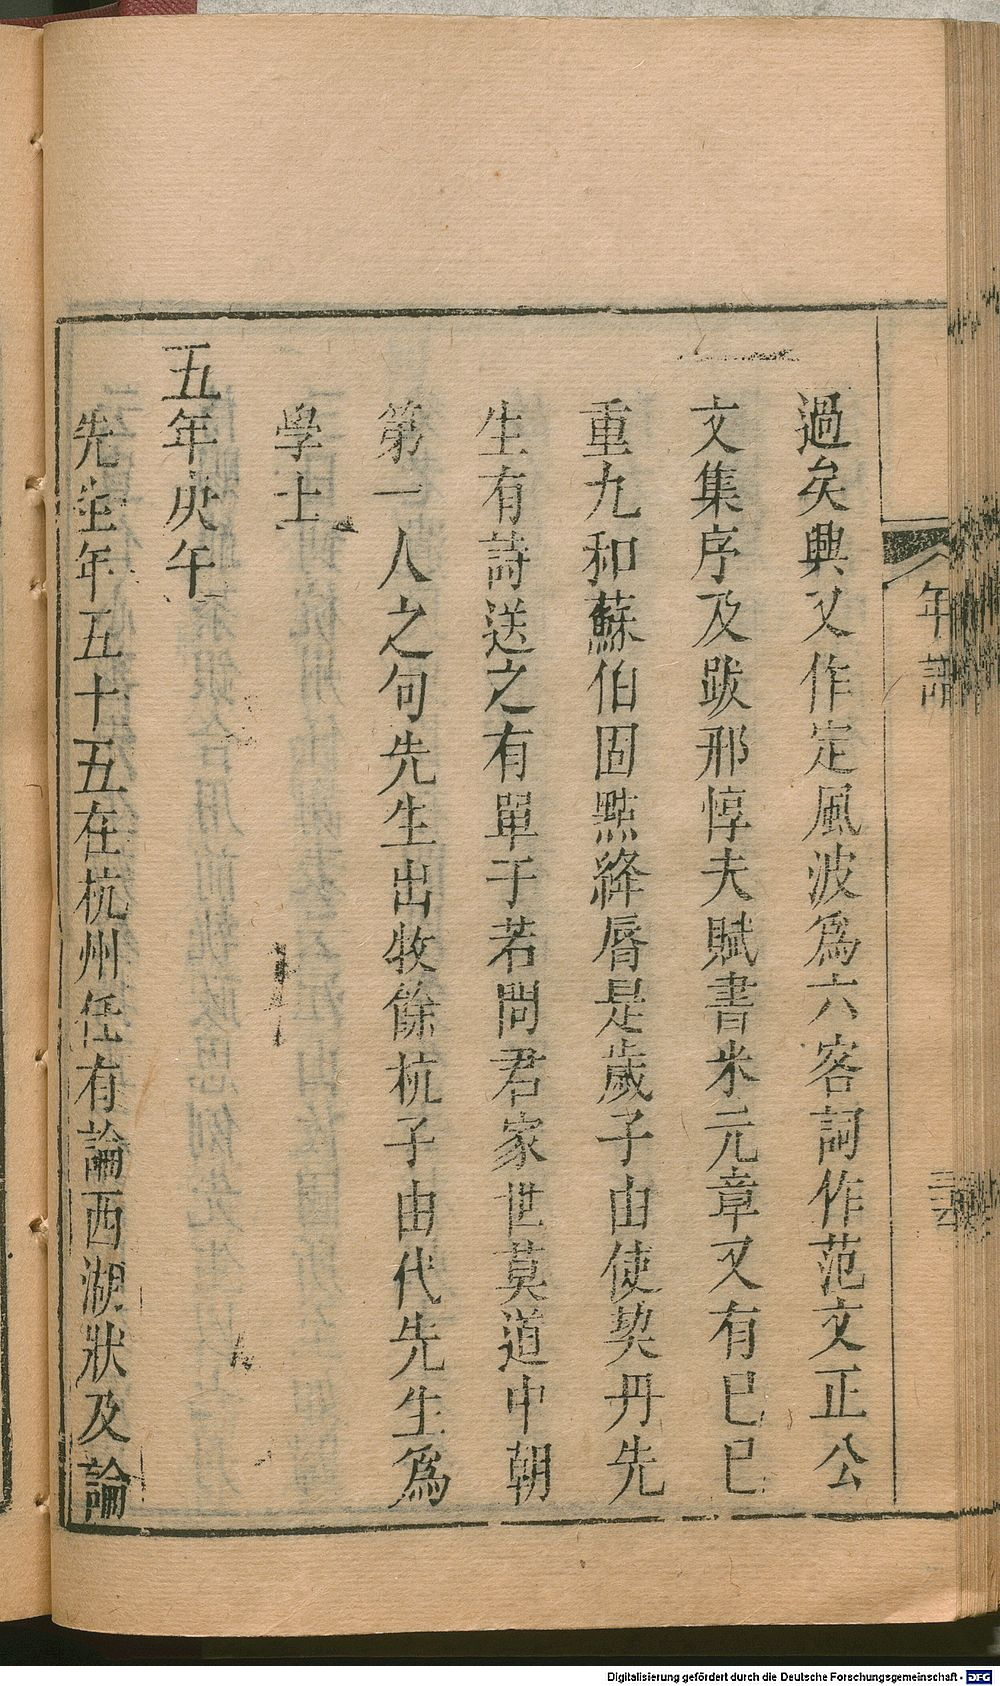 過矣興又作定風波爲六客詞作范文正公
文集序及跋邢惇夫賦書米元章又有已已
重九和蘇伯固點絳唇是歲子由使契丹先
生有詩送之有單于若問君家世莫道中朝
第一人之句先生出牧餘杭子由代先生爲
學士
五年庚午
先生年五十五在杭州任有論西湖狀及論
年譜
Digitalisierung gefördert durch die Deutsche Forschungsgemeinschaft - DFG